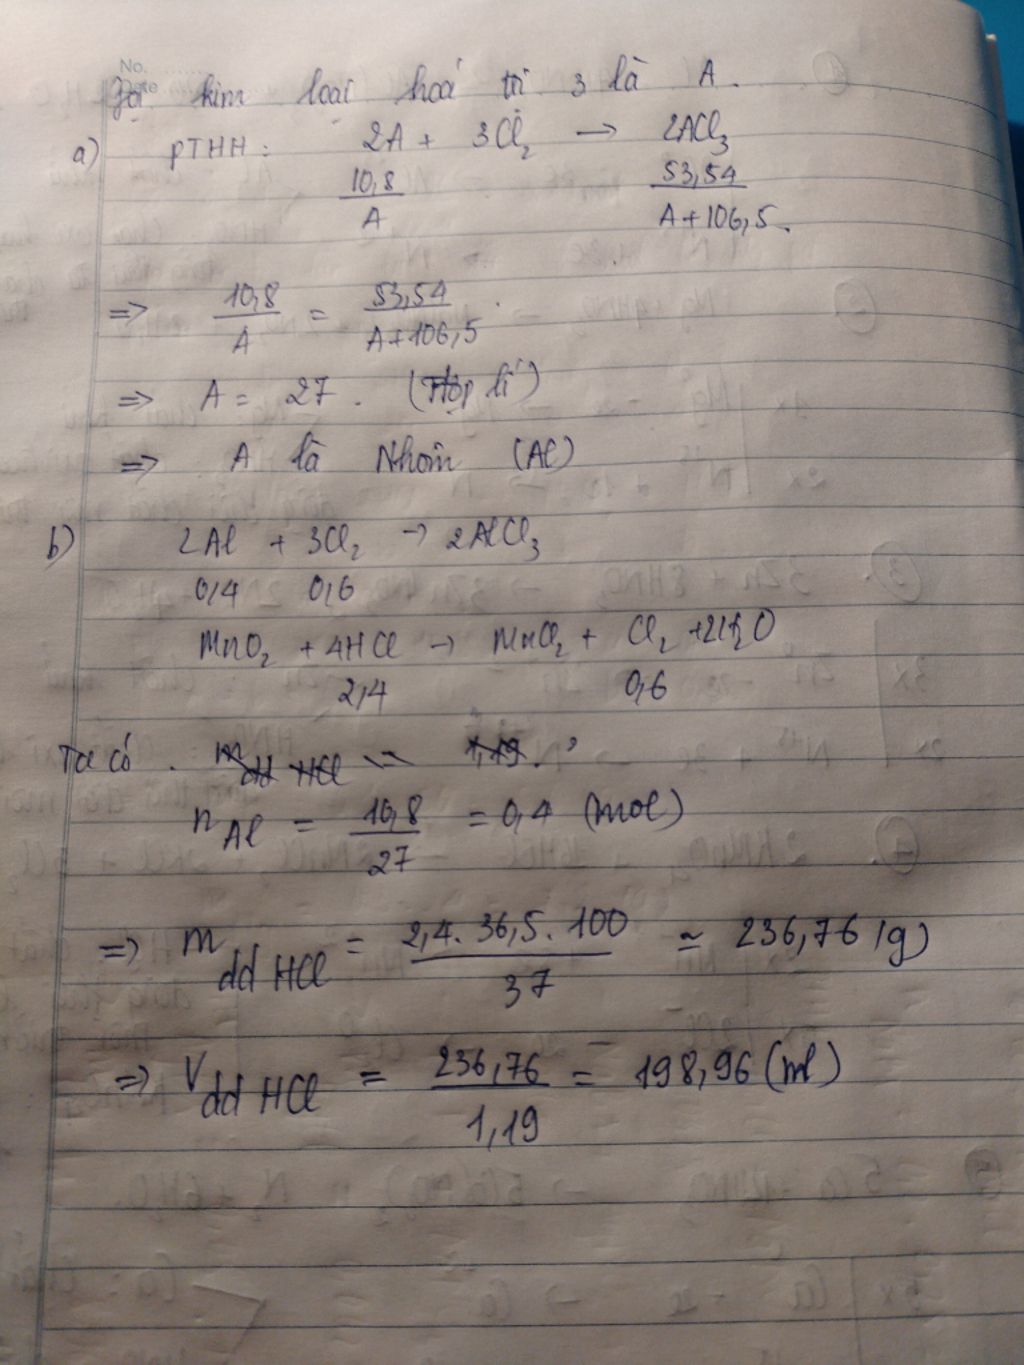 No.
Date
Gọi kim loại hoá trị 3 là A.
a) PTHH: 2A + 3Cl₂ → 2ACl₃
10,8/A 53,54/A+106,5.
=> 10,8/A = 53,54/A+106,5.
=> A = 27. (Hợp lí)
=> A là Nhôm (Al)
b) 2Al + 3Cl₂ → 2AlCl₃
0,4 0,6
MnO₂ + 4HCl → MnCl₂ + Cl₂ + 2H₂O
2,4 0,6
Ta có. m dd HCl = 1,19.
n Al = 10,8/27 = 0,4 (mol)
=> m dd HCl = 2,4.36,5.100/37 ≃ 236,76 (g)
=> V dd HCl = 236,76/1,19 = 198,96 (ml)